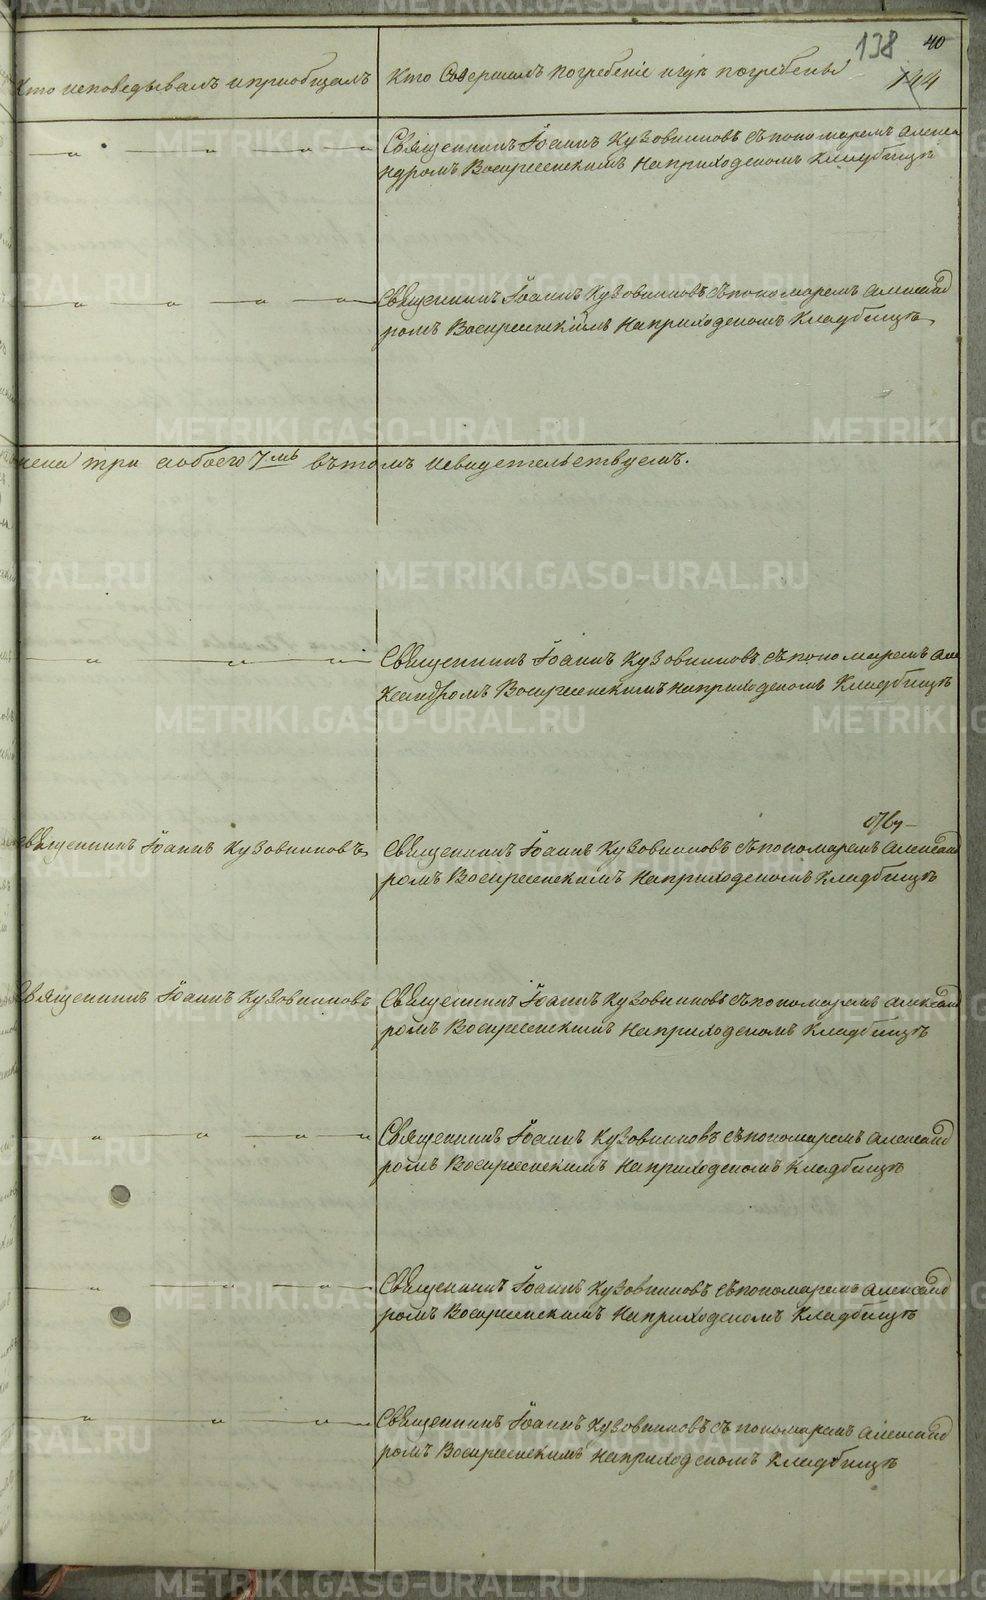 138 40
Кто исповедывалъ и приобщалъ
Кто Совершалъ погребеніе и гдѣ погребены
144
Священникъ Іоаннъ Кузовниковъ съ пономаремъ Алекса
ндромъ Воскресенскимъ на приходскомъ кладбищѣ
Священникъ Іоаннъ Кузовниковъ съ пономаремъ Александ
ромъ Воскресенскимъ на приходскомъ кладбищѣ
три а обоего 7мь въ томъ и свидетельствуемъ.
Священникъ Іоаннъ Кузовниковъ съ пономаремъ Але
ксандромъ Воскресенскимъ на приходскомъ кладбищѣ
Священникъ Іоаннъ Кузовниковъ
Священникъ Іоаннъ Кузовниковъ съ пономаремъ Александ
ромъ Воскресенскимъ на приходскомъ кладбищѣ
Священникъ Іоаннъ Кузовниковъ
Священникъ Іоаннъ Кузовниковъ съ пономаремъ Александ
ромъ Воскресенскимъ на приходскомъ кладбищѣ
Священникъ Іоаннъ Кузовниковъ съ пономаремъ Александ
ромъ Воскресенскимъ на приходскомъ кладбищѣ
Священникъ Іоаннъ Кузовниковъ съ пономаремъ Александ
ромъ Воскресенскимъ на приходскомъ кладбищѣ
Священникъ Іоаннъ Кузовниковъ съ пономаремъ Александ
ромъ Воскресенскимъ на приходскомъ кладбищѣ